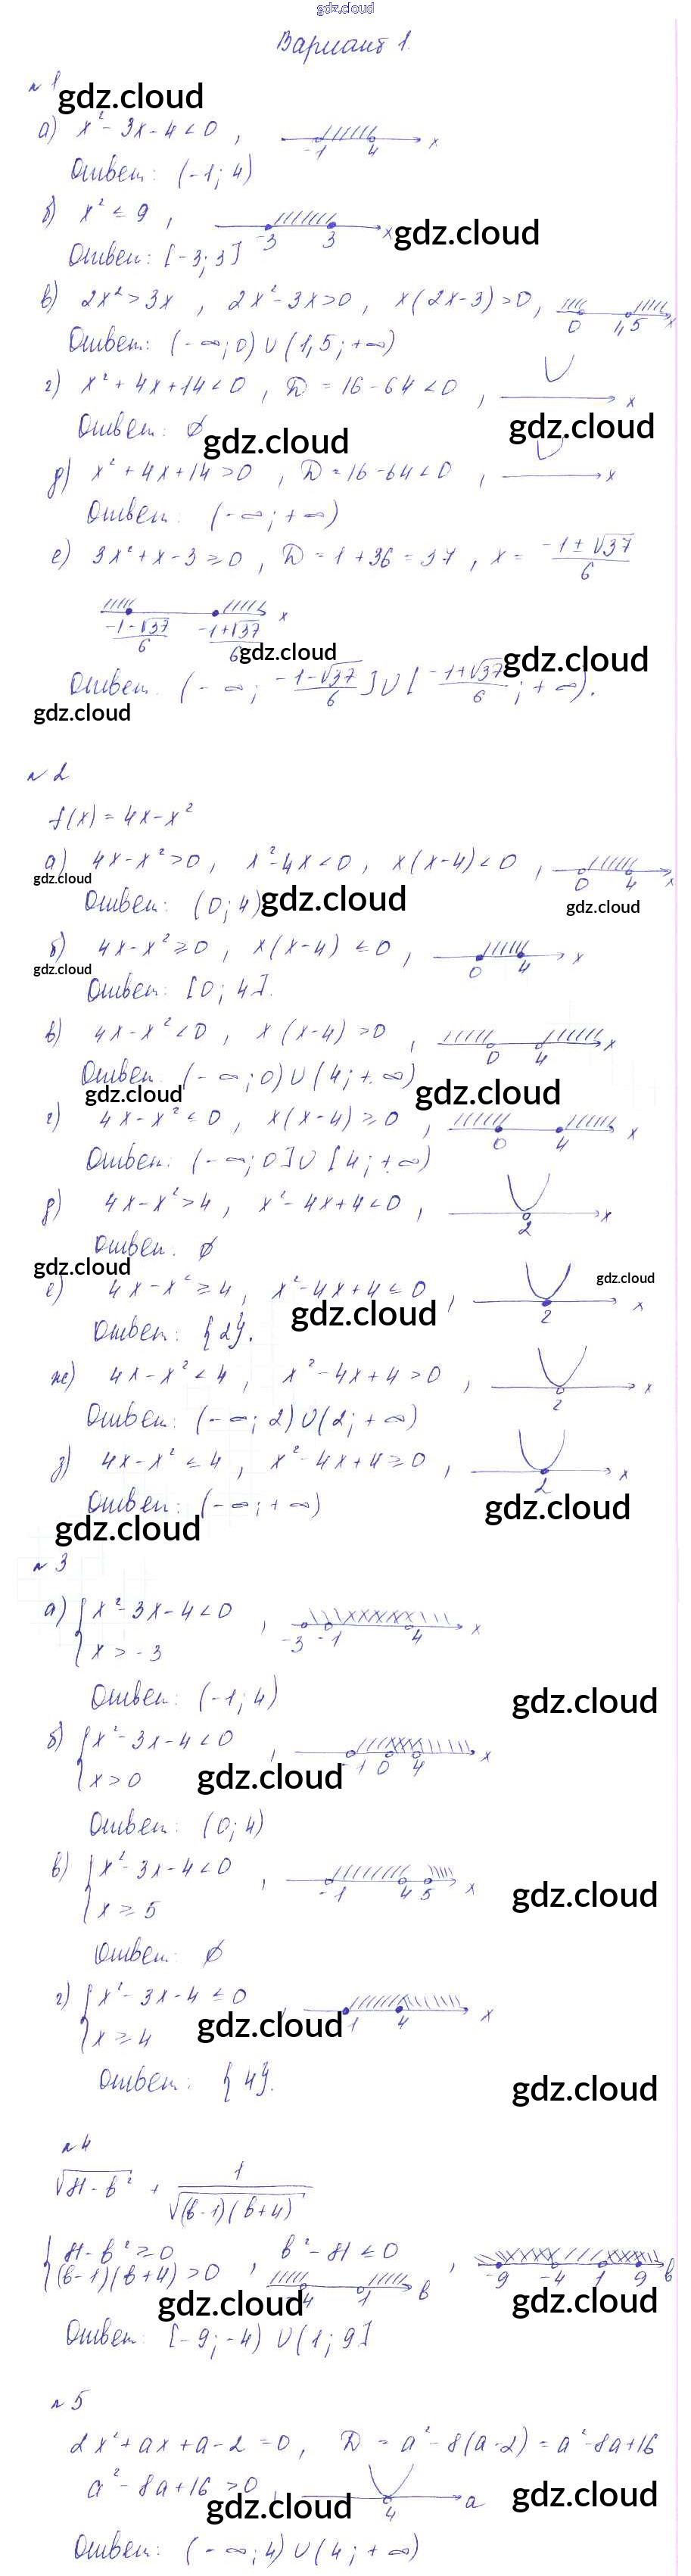 gdz.cloud
Вариант 1.
№1
gdz.cloud
а) x² - 3x - 4 < 0 , -1 4 x
Ответ: (-1; 4)
б) x² ≤ 9 , -3 3 x
gdz.cloud
Ответ: [-3; 3]
в) 2x² > 3x , 2x² - 3x > 0 , x(2x-3) > 0 , 0 1,5 x
Ответ: (-∞; 0) ∪ (1,5; +∞)
г) x² + 4x + 14 < 0 , D = 16 - 64 < 0 , x
Ответ: ∅
gdz.cloud
gdz.cloud
д) x² + 4x + 14 > 0 , D = 16 - 64 < 0 , x
Ответ: (-∞; +∞)
е) 3x² + x - 3 ≥ 0 , D = 1 + 36 = 37 , x = (-1 ± √37)/6
(-1-√37)/6 (-1+√37)/6 x
gdz.cloud
gdz.cloud
Ответ: (-∞; (-1-√37)/6] ∪ [(-1+√37)/6; +∞).
gdz.cloud
№2
f(x) = 4x - x²
а) 4x - x² > 0 , x² - 4x < 0 , x(x-4) < 0 , 0 4 x
gdz.cloud
Ответ: (0; 4)
gdz.cloud
gdz.cloud
б) 4x - x² ≥ 0 , x(x-4) ≤ 0 , 0 4 x
gdz.cloud
Ответ: [0; 4].
в) 4x - x² < 0 , x(x-4) > 0 , 0 4 x
Ответ: (-∞; 0) ∪ (4; +∞)
gdz.cloud
gdz.cloud
г) 4x - x² ≤ 0 , x(x-4) ≥ 0 , 0 4 x
Ответ: (-∞; 0] ∪ [4; +∞)
д) 4x - x² > 4 , x² - 4x + 4 < 0 , 2 x
Ответ: ∅
gdz.cloud
gdz.cloud
е) 4x - x² ≥ 4 , x² - 4x + 4 ≤ 0 , 2 x
gdz.cloud
Ответ: {2}.
ж) 4x - x² < 4 , x² - 4x + 4 > 0 , 2 x
Ответ: (-∞; 2) ∪ (2; +∞)
з) 4x - x² ≤ 4 , x² - 4x + 4 ≥ 0 , 2 x
Ответ: (-∞; +∞)
gdz.cloud
gdz.cloud
№3
а) { x² - 3x - 4 < 0 , -3 -1 4 x
x > -3
Ответ: (-1; 4)
gdz.cloud
б) { x² - 3x - 4 < 0 , -1 0 4 x
x > 0
gdz.cloud
Ответ: (0; 4)
в) { x² - 3x - 4 < 0 , -1 4 5 x
x ≥ 5
gdz.cloud
Ответ: ∅
г) { x² - 3x - 4 ≤ 0 , -1 4 x
x ≥ 4
gdz.cloud
Ответ: {4}.
gdz.cloud
№4
√(81 - b²) + 1/√((b-1)(b+4))
{ 81 - b² ≥ 0 , b² - 81 ≤ 0
(b-1)(b+4) > 0 , -4 1 b , -9 -4 1 9 b
gdz.cloud
gdz.cloud
Ответ: [-9; -4) ∪ (1; 9]
№5
2x² + ax + a - 2 = 0 , D = a² - 8(a-2) = a² - 8a + 16
a² - 8a + 16 > 0 , 4 a
gdz.cloud
gdz.cloud
Ответ: (-∞; 4) ∪ (4; +∞)